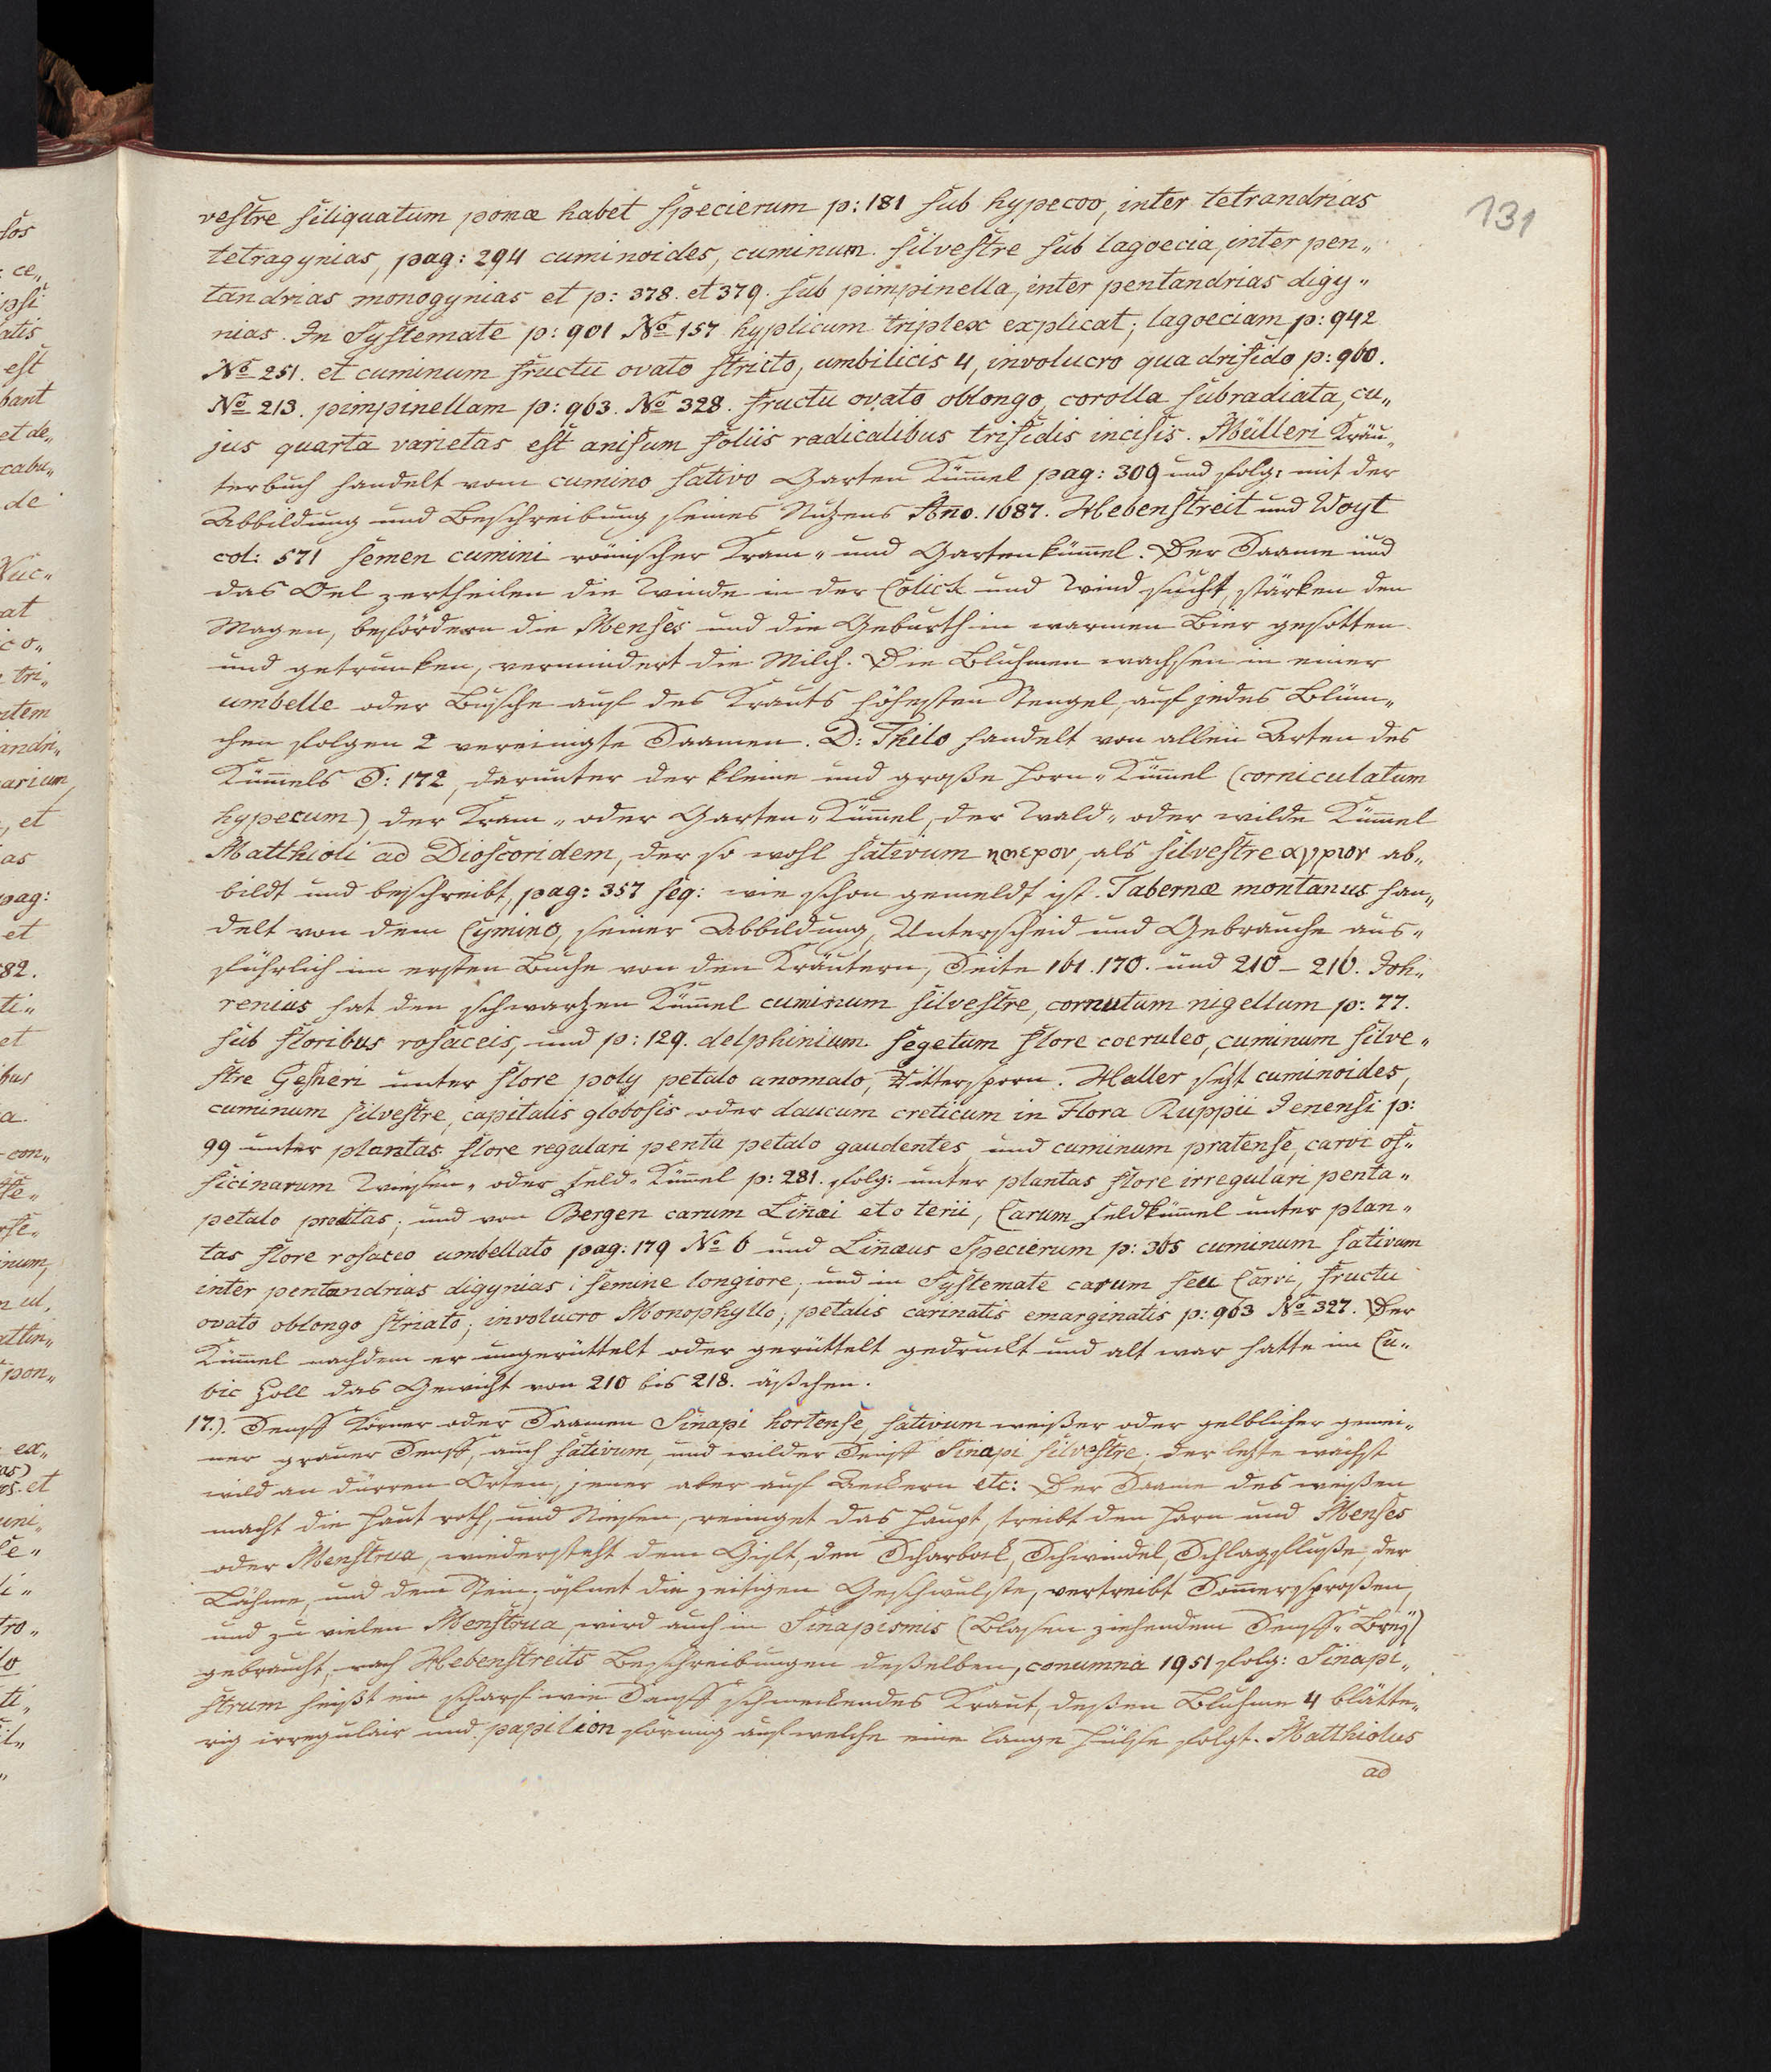 131
vestre siliquatum ponæ habet specierum p: 181 sub hypecoo, inter tetrandrias
tetragynias, pag: 294 cuminoides, cuminum silvestre sub lagoecia, inter pen„
tandrias monogynias et p: 378. et 379. sub pimpinella, inter pentandrias digy„
nias. In Systemate p: 901 No 157 hyplicum triplex explicat; lagoeciam p: 942
No 251. et cuminum fructu ovato stricto, umbilicis 4, involucro quadrifido p: 960.
No 213. pimpinellam p: 963. No 328. fructu ovato oblongo, corolla subradiata, cu„
jus quarta varietas est anisum foliis radicalibus trifidis incisis. Mülleri Kräu„
terbuch handelt vom cumino sativo Garten Kümmel pag: 309 und folg: mit der
Abbildung und Beschreibung seines Nutzens Ano. 1687. Hebenstreit und Woyt
col: 571 semen cumini römischer Kram- und Gartenkümmel. Der Saame und
das Oel zertheilen die Winde in der Colick und Windsucht, stärken den
Magen, befördern die Menses und die Geburth in warmen Bier gesotten
und getrunken, vermindert die Milch. Die Bluhmen wachsen in einer
umbelle oder Busche auf des Krauts höhesten Stengel, auf jedes Blüm„
chen folgen 2 vereinigte Saamen. D: Thilo handelt von allen Arten des
Kümmels S: 172, darunter der kleine und große Horn-Kümmel (corniculatum
hypecum), der Kram„ oder Garten„Kümmel, der Wald„ oder wilde Kümmel
Matthioli ad Dioscoridem, der so wohl sativum ημερον, als silvestre αγριον ab„
bildt und beschreibt, pag: 357 seq: wie schon gemeldt ist. Tabernæ montanus han„
delt von dem Cymino, seiner Abbildung, Unterscheid und Gebrauche aus„
führlich im ersten Buche von den Kräutern, Seite 161. 170. und 210 – 216. Joh„
renius hat den schwartzen Kümmel cuminum silvestre, cornutum nigellum p: 77.
sub floribus rosaceis, und p: 129. delphinium segetum flore coeruleo, cuminum silve„
stre Gesneri unter flore poly petalo anomalo, Rittersporn. Haller setzt cuminoides,
cuminum silvestre, capitalis globosis oder daucum creticum in Flora Ruppii Jenensi p:
99 unter plantas flore regulari penta petalo gaudentes und cuminum pratense, carvi of„
ficinarum Wiesen„ oder Feld„Kümmel p: 281. folg: unter plantas flore irregulari penta„
petalo preditas; und von Bergen carum Linæi et o terii, Carum Feldkümmel unter plan„
tas flore rosaceo umbellato pag: 179 No 6 und Linæus Specierum p: 365 cuminum sativum
inter pentandrias digynias; semine longiore; und in Systemate carum seu Carvi, fructu
ovato oblongo striato; involucro Monophyllo; petalis carinatis emarginatis p: 963 No 327. Der
Kümmel nachdem er ungerüttelt oder gerüttelt gedruckt und alt war hatte im Cu„
bic Zoll das Gewicht von 210 bis 218. äßchen.
17.). Senff Körner oder Saamen Sinapi hortense, sativum weißer oder gelblicher gemei„
ner grauer Senff, auch sativum, und wilder Senff Sinapi silvestre, der letzte wächst
wild an dürren Orten, jener aber auf Aeckern etc: Der Saame des weißen
macht die Haut roth, und Niesen, reiniget das Haupt, treibt den Harn und Menses
oder Menstrua, wiedersteht dem Gift, den Scharbock, Schwindel, Schlagflusse, der
Lähme, und dem Stein, öfnet die zeitigen Geschwulste, vertreibt Sommersproßen,
und zu vielen Menstrua, wird auch in Sinapismis (Blasen ziehendem Senff„Brey)
gebraucht, nach Hebenstreits Beschreibungen deßelben, conumna 1951 folg: Sinapi„
strum heißt ein scharf wie Senff schmeckendes Kraut, deßen Bluhme 4 blätte„
rig irregulair und papilion förmig auf welche eine lange Hülse folgt. Matthiolus
ad